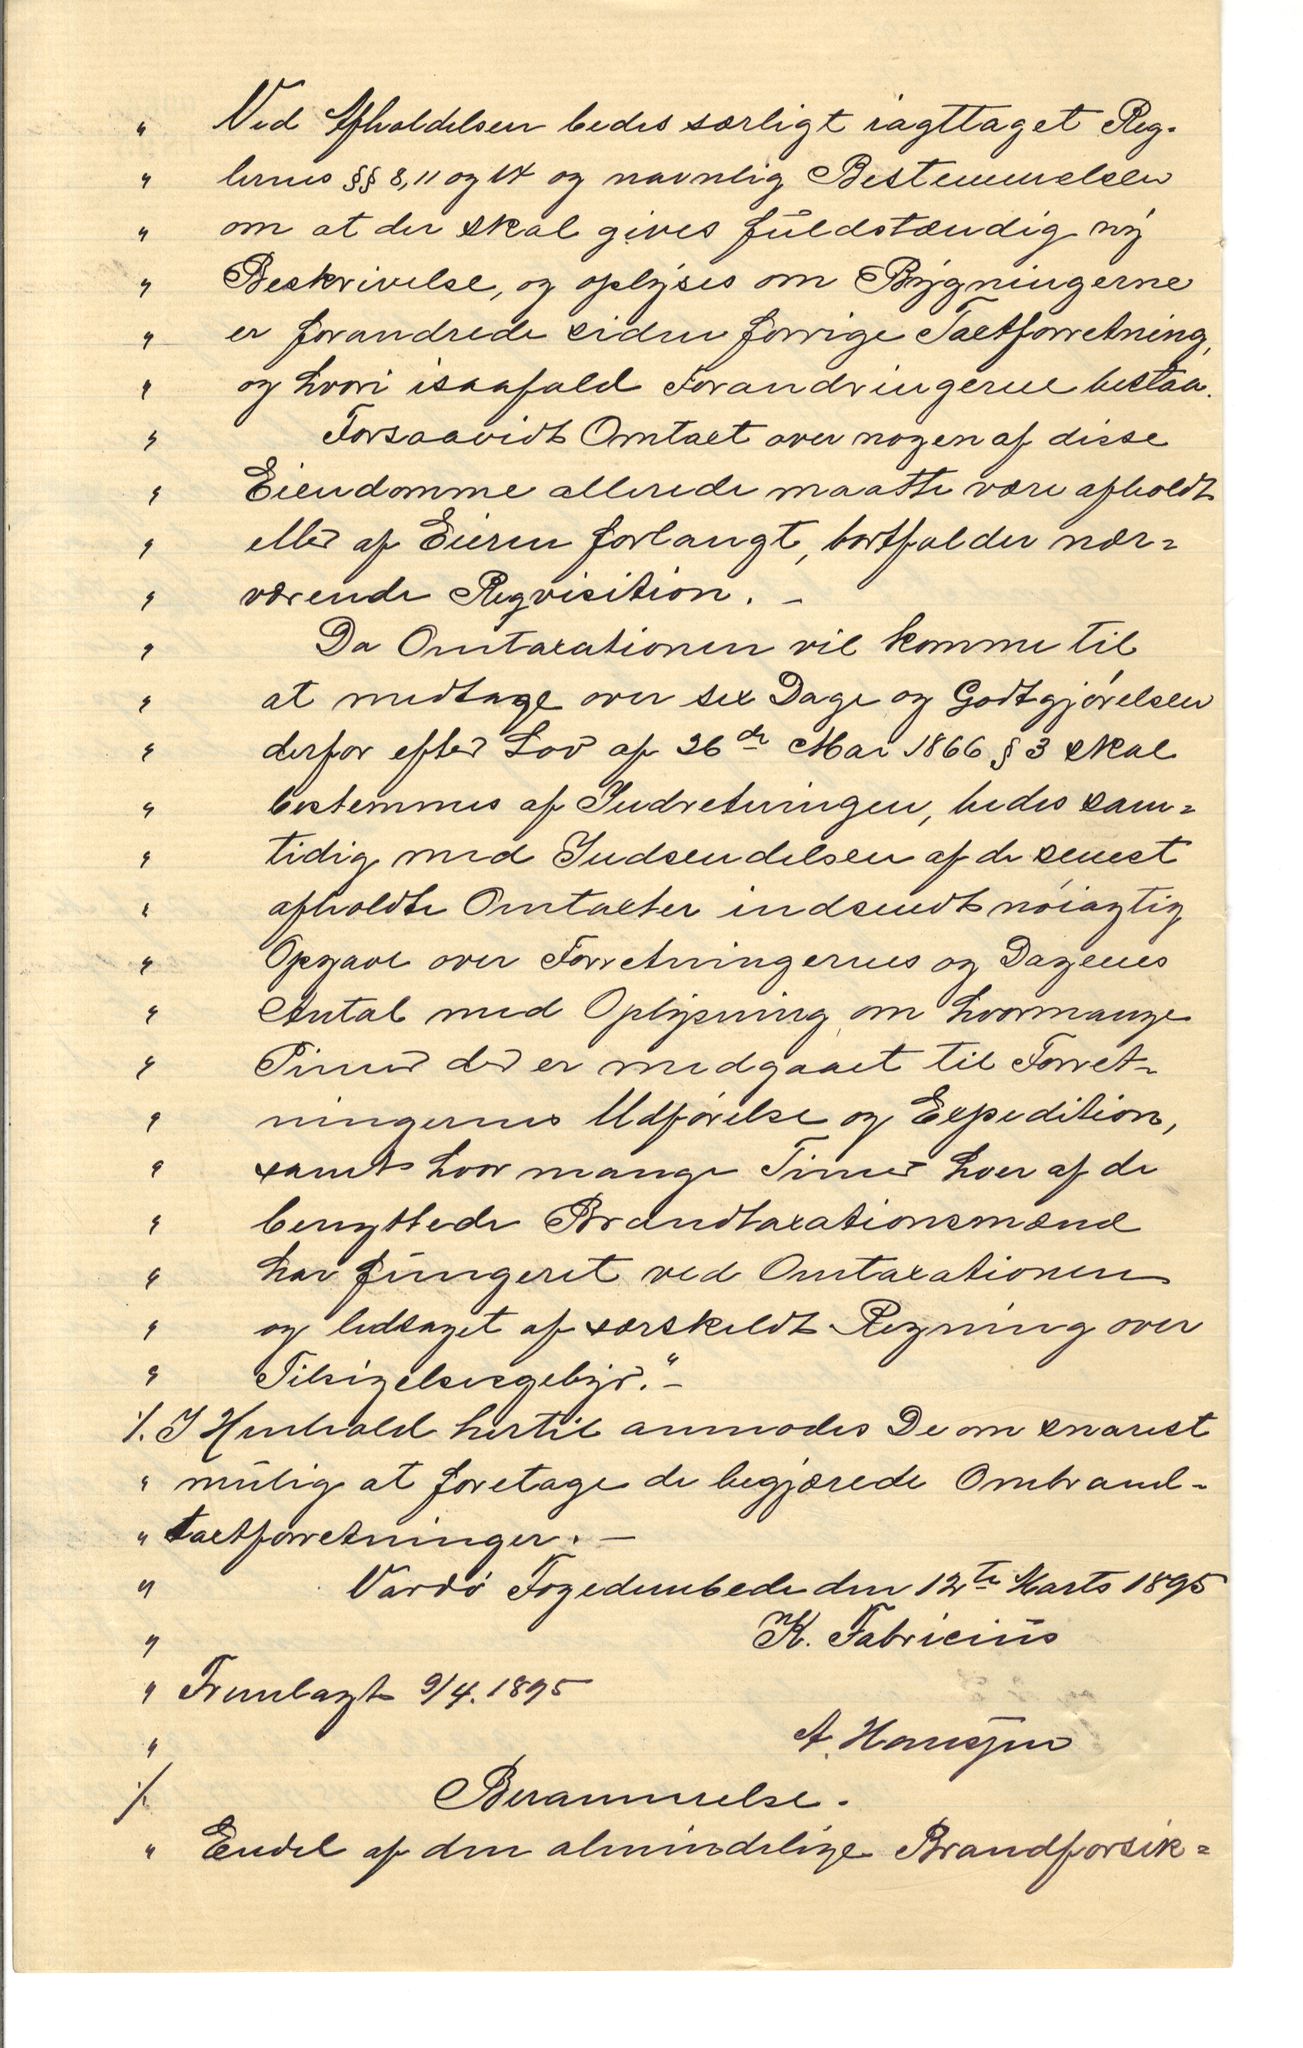 " Ved Afholdelsen bedes særligt iagttaget Reg-
" lernes §§ 8, 11 og 14 og navnlig Bestemmelsen
" om at der skal gives fuldstændig ny
" Beskrivelse, og oplyses om Bygningerne
" er forandrede siden forrige Taxtforretning,
" og hvori isaafald Forandringerne bestaa.
" Forsaavidt Omtaxt over nogen af disse
" Eiendomme allerede maatte være afholdt
" eller af Eieren forlangt, bortfalder nær-
" værende Reqvisition. –
" Da Omtaxationen vil komme til
" at medtage over sex Dage og Godtgjørelsen
" derfor efter Lov af 26de Mai 1866 § 3 skal
" bestemmes af Indretningen, bedes sam-
" tidig med Indsendelsen af de senest
" afholdte Omtaxter indsendt nøiagtig
" Opgave over Forretningernes og Dagenes
" Antal med Oplysning om hvormange
" Timer der er medgaaet til Forret-
" ningernes Udførelse og Expedition,
" samt hvor mange Timer hver af de
" benyttede Brandtaxationsmænd
" har fungeret ved Omtaxationen
" og ledsaget af særskildt Regning over
" Tilsigelsesgebyr." –
./. I Henhold hertil anmodes De om snarest
" mulig at foretage de begjærede Ombrand-
" taxtforretninger. –
" Vardø Fogedembede den 12te Marts 1895
" K. Fabricius
" Fremlagt 9/4. 1895
" A.
./. Berammelse.
" Endel af den almindelige Brandforsik-